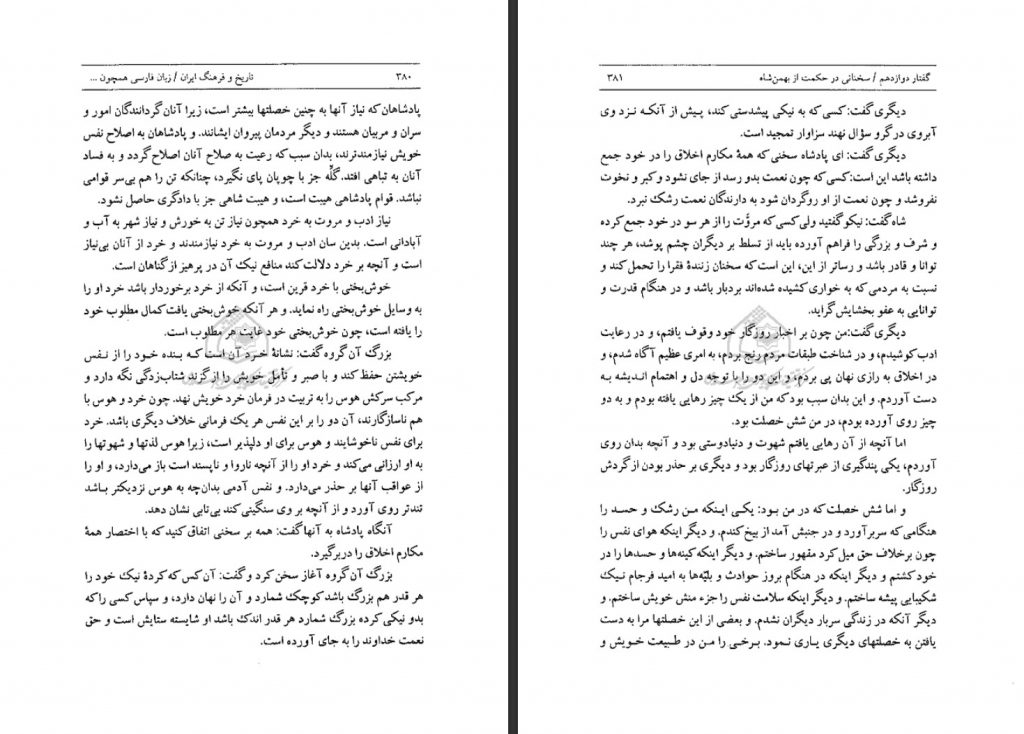 ۳۸۰ تاریخ و فرهنگ ایران / زبان فارسی همچون ...
پادشاهان که نیاز آنها به چنین خصلتها بیشتر است، زیرا آنان گردانندگان امور و
سران و مربیان هستند و دیگر مردمان پیروان ایشانند. و پادشاهان به اصلاح نفس
خویش نیازمندترند، بدان سبب که رعیت به صلاح آنان اصلاح گردد و به فساد
آنان به تباهی افتد. گلّه جز با چوپان پای نگیرد، چنانکه تن را هم بی‌سر قوامی
نباشد. قوام پادشاهی هیبت است، و هیبت شاهی جز با دادگری حاصل نشود.
نیاز ادب و مروت به خرد همچون نیاز تن به خورش و نیاز شهر به آب و
آبادانی است. بدین سان ادب و مروت به خرد نیازمندند و خرد از آنان بی‌نیاز
است و آنچه بر خرد دلالت کند منافع نیک آن در پرهیز از گناهان است.
خوش‌بختی با خرد قرین است، و آنکه از خرد برخوردار باشد خرد او را
به وسایل خوش‌بختی راه نماید. و هر آنکه خوش‌بختی یافت کمال مطلوب خود
را یافته است، چون خوش‌بختی خود غایت هر مطلوب است.
بزرگ آن گروه گفت: نشانهٔ خرد آن است که بنده خود را از نفس
خویشتن حفظ کند و با صبر و تأمل خویش را از گزند شتاب‌زدگی نگه دارد و
مرکب سرکش هوس را به تربیت در فرمان خرد خویش نهد. چون خرد و هوس با
هم ناسازگارند، آن دو را بر این نفس هر یک فرمانی خلاف دیگری باشد. خرد
برای نفس ناخوشایند و هوس برای او دلپذیر است، زیرا هوس لذتها و شهوتها را
به او ارزانی می‌کند و خرد او را از آنچه ناروا و ناپسند است باز می‌دارد، و او را
از عواقب آنها بر حذر می‌دارد. و نفس آدمی بدان‌چه به هوس نزدیکتر باشد
تندتر روی آورد و از آنچه بر وی سنگینی کند بی‌تابی نشان دهد.
آنگاه پادشاه به آنها گفت: همه بر سخنی اتفاق کنید که با اختصار همهٔ
مکارم اخلاق را دربرگیرد.
بزرگ آن گروه آغاز سخن کرد و گفت: آن کس که کردهٔ نیک خود را
هر قدر هم بزرگ باشد کوچک شمارد و آن را نهان دارد، و سپاس کسی را که
بدو نیکی کرده بزرگ شمارد هر قدر اندک باشد او شایسته ستایش است و حق
نعمت خداوند را به جای آورده است.
گفتار دوازدهم / سخنانی در حکمت از بهمن‌شاه ۳۸۱
دیگری گفت: کسی که به نیکی پیشدستی کند، پیش از آنکه نزد وی
آبروی در گرو سؤال نهند سزاوار تمجید است.
دیگری گفت: ای پادشاه سخنی که همهٔ مکارم اخلاق را در خود جمع
داشته باشد این است: کسی که چون نعمت بدو رسد از جای نشود و کبر و نخوت
نفروشد و چون نعمت از او روگردان شود به دارندگان نعمت رشک نبرد.
شاه گفت: نیکو گفتید ولی کسی که مروّت را از هر سو در خود جمع کرده
و شرف و بزرگی را فراهم آورده باید از تسلط بر دیگران چشم پوشد، هر چند
توانا و قادر باشد و رساتر از این، این است که سخنان زنندهٔ فقرا را تحمل کند و
نسبت به مردمی که به خواری کشیده شده‌اند بردبار باشد و در هنگام قدرت و
توانایی به عفو بخشایش گراید.
دیگری گفت: من چون بر اخبار روزگار خود وقوف یافتم، و در رعایت
ادب کوشیدم، و در شناخت طبقات مردم رنج بردم، به امری عظیم آگاه شدم، و
در اخلاق به رازی نهان پی بردم، و این دو را با توجه دل و اهتمام اندیشه به
دست آوردم. و این بدان سبب بود که من از یک چیز رهایی یافته بودم و به دو
چیز روی آورده بودم، در من شش خصلت بود.
اما آنچه از آن رهایی یافتم شهوت و دنیادوستی بود و آنچه بدان روی
آوردم، یکی پندگیری از عبرتهای روزگار بود و دیگری بر حذر بودن از گردش
روزگار.
و اما شش خصلت که در من بود: یکی اینکه من رشک و حسد را
هنگامی که سر برآورد و در جنبش آمد از بیخ کندم. و دیگر اینکه هوای نفس را
چون برخلاف حق میل کرد مقهور ساختم. و دیگر اینکه کینه‌ها و حسدها را در
خود کشتم و دیگر اینکه در هنگام بروز حوادث و بلیّه‌ها به امید فرجام نیک
شکیبایی پیشه ساختم. و دیگر اینکه سلامت نفس را جزء منش خویش ساختم. و
دیگر آنکه در زندگی سربار دیگران نشدم. و بعضی از این خصلتها مرا به دست
یافتن به خصلتهای دیگری یاری نمود. برخی را من در طبیعت خویش و